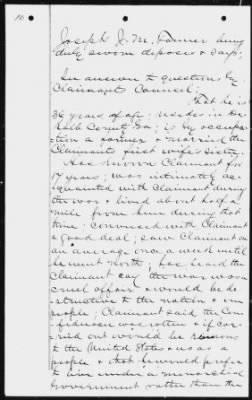 10
Joseph J. M. Farmer being
duly sworn deposes & says:
In answer to questions by
Claimants Counsel;
That he is
36 years of age; resides in De
Kalb County Ga; is by occupa
tion a farmer & married the
Claimants first wifes sister;
Has known Claimant for
17 years; was intimately ac-
quainted with Claimant during
the war & lived about half a
mile from him during that
time; conversed with Claimant
a good deal; saw Claimant on
an average once a week until
he went north; has heard the
Claimant say the war was a
cruel affair & would be de
structive to the nation &
people; Claimant said the Con
federacy was rotten & if car
ried out would be ruinous
to the United States as a
people & that he would prefer
to live under a monarchical
Government rather than the